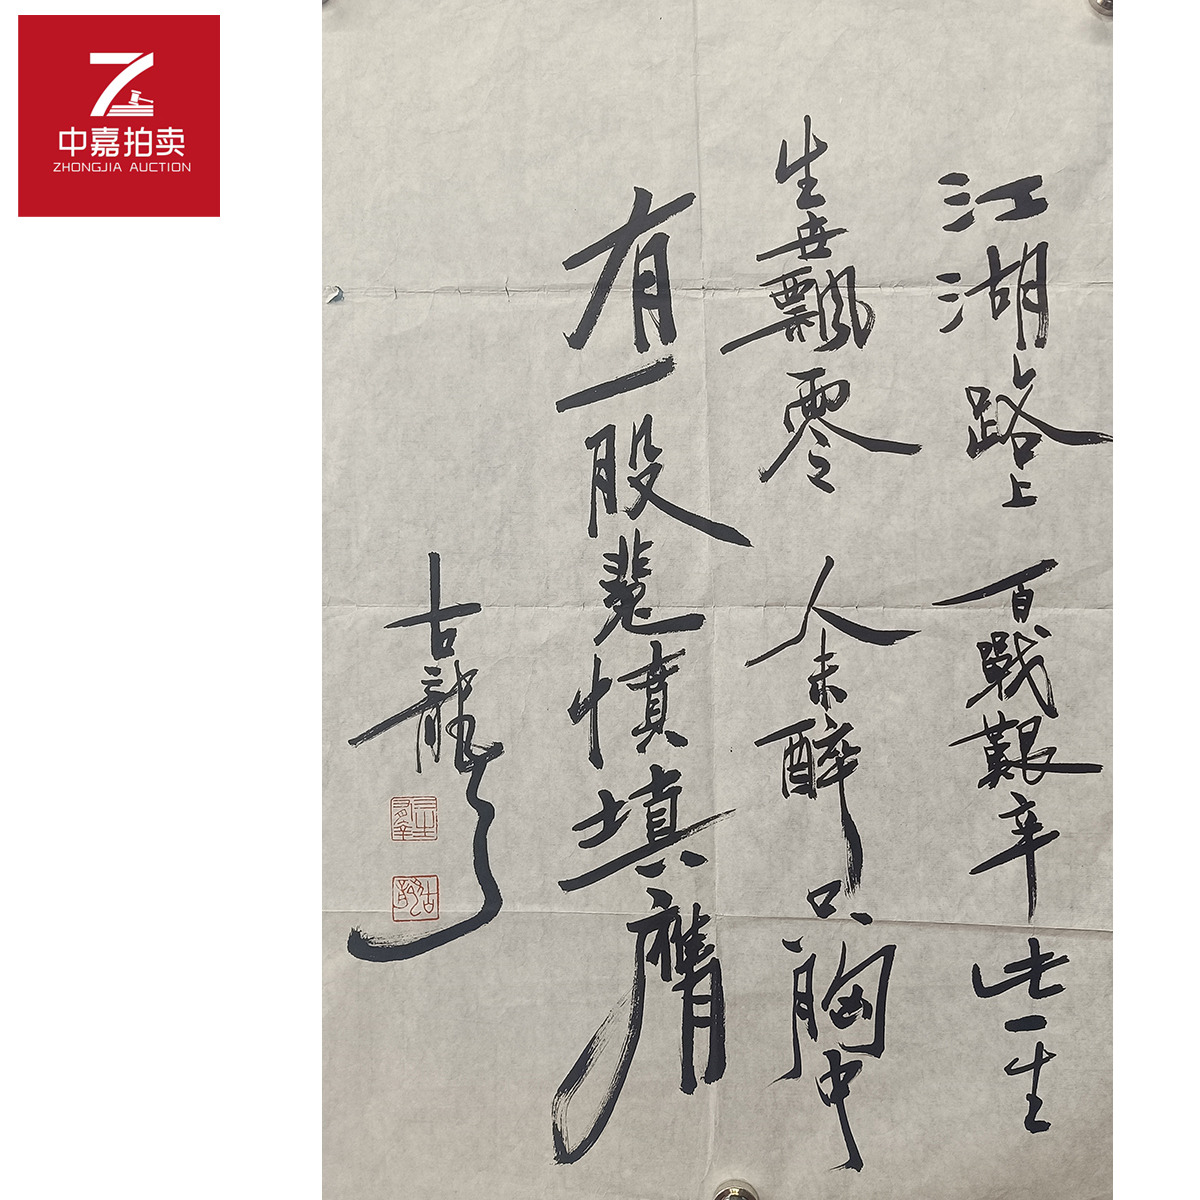 中嘉拍卖
ZHONGJIA AUCTION
江湖路上 百戰艱辛 此一生
生世飄零 人未醉 只胸中
有一股悲憤填膺
古龍